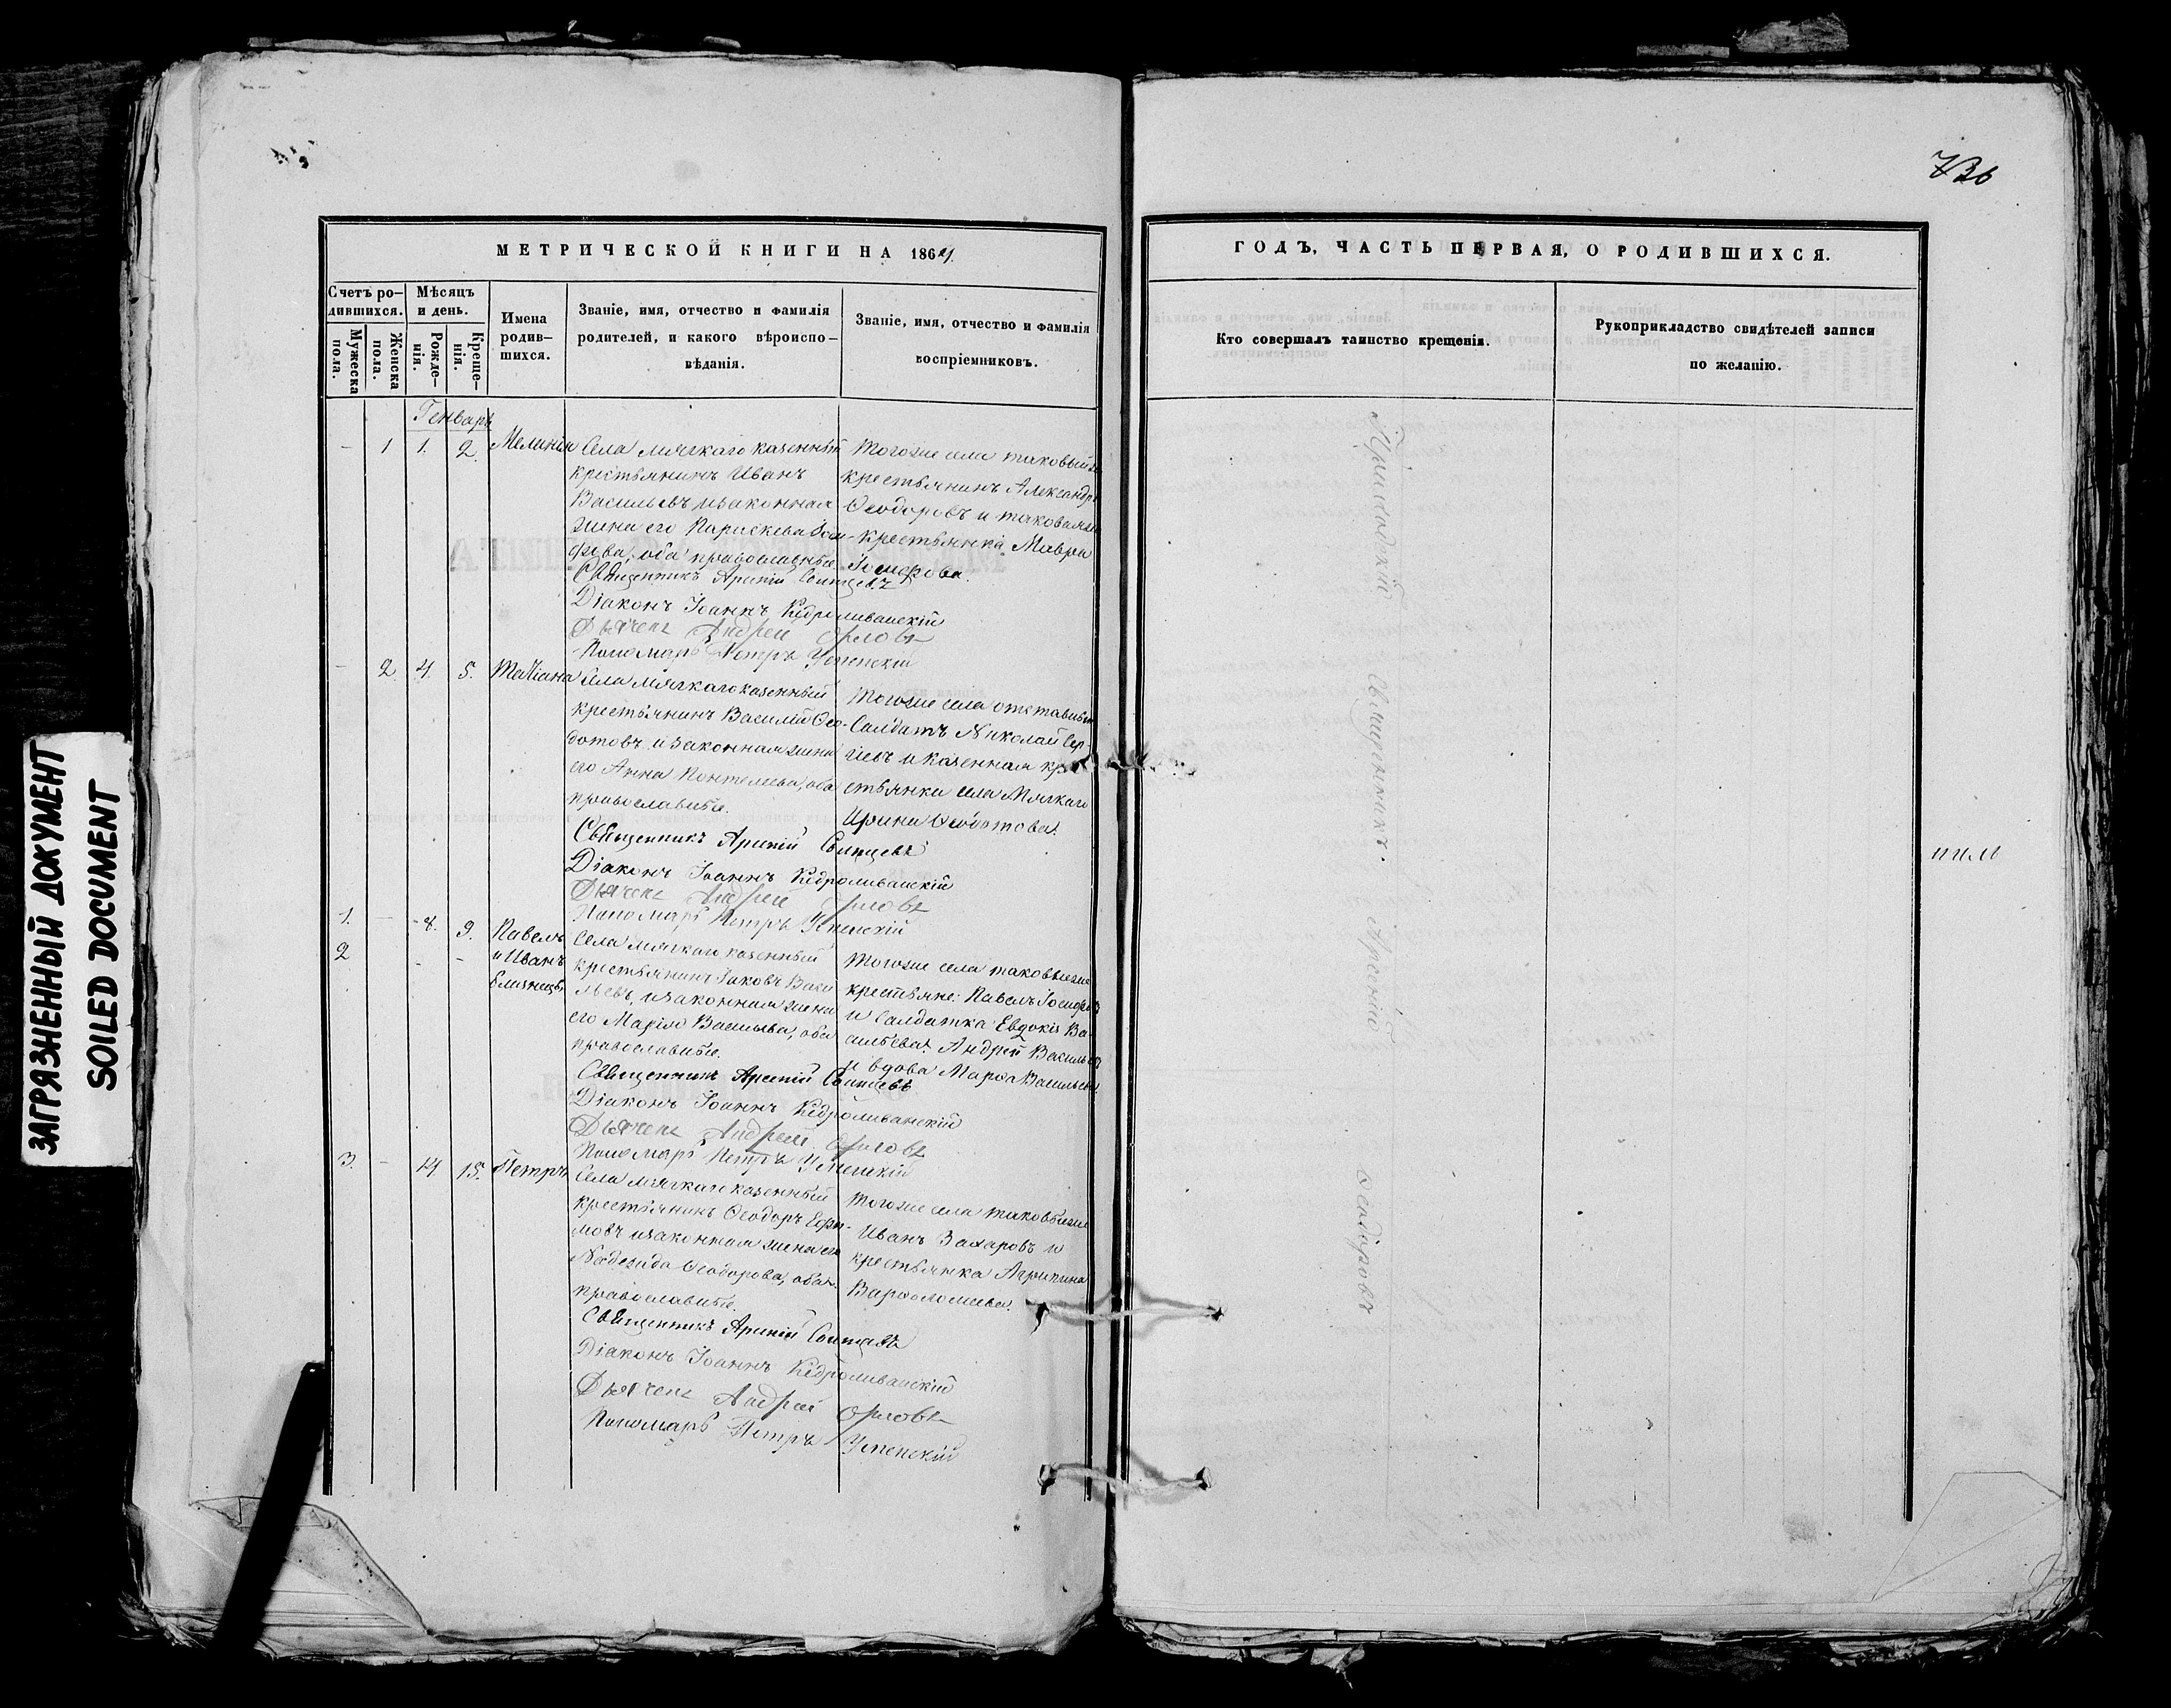 736
МЕТРИЧЕСКОЙ КНИГИ НА 1864
ГОДЪ, ЧАСТЬ ПЕРВАЯ, О РОДИВШИХСЯ.
Счетъ ро-
дившихся.
Мужеска
пола.
Женска
пола.
Мѣсяцъ
и день.
Рожде-
нія.
Креще-
нія.
Имена
родив-
шихся.
Званіе, имя, отчество и фамилія
родителей, и какого вѣроиспо-
вѣданія.
Званіе, имя, отчество и фамилія
воспріемниковъ.
Кто совершалъ таинство крещенія.
Рукоприкладство свидѣтелей записи
по желанію.
Генварь
- 1 1. 2. Меланія
Села Мягкаго казенный
крестьянинъ Иванъ
Васильевъ и законная
жена его Параскева
оба православные
Тогоже села таковый
крестьянинъ Александръ
Ѳеодоровъ и таковая
крестьянка Мавра
Священникъ Арсеній
Діаконъ Іоаннъ Кедроливанскій
Дьячекъ Андрей Орловъ
Пономарь Петръ Успенскій
- 2. 4. 5. Татіана
Села Мягкаго казенный
крестьянинъ Василій Ѳео-
дотовъ и законная жена
его Анна оба
православные.
Тогоже села отставный
Салдатъ Николай Сер-
гіевъ и казенная кре
стьянка села Мягкаго
Ирина Ѳеодотова.
Священникъ Арсеній
Діаконъ Іоаннъ Кедроливанскій
Дьячекъ Андрей Орловъ
Пономарь Петръ Успенскій
1. - 8. 9. Павелъ
2 - - и Иванъ
близнецы
Села Мягкаго казенный
крестьянинъ Іаковъ Васи
льевъ, и законная жена
его Марія Васильева, оба
православные.
Тогоже села таковые же
крестьяне: Павелъ Іосифовъ
и Салдатка Евдокія Ва
сильева. Андрей Васильевъ
и вдова Марѳа Васильева.
Священникъ Арсеній
Діаконъ Іоаннъ Кедроливанскій
Дьячекъ Андрей Орловъ
Пономарь Петръ Успенскій
3. - 14 15. Петръ
Села Мягкаго казенный
крестьянинъ Ѳеодоръ Ефи-
мовъ и законная жена его
Надежда Ѳеодорова, оба
православные.
Тогоже села таковый же
Иванъ Захаровъ и
крестьянка Агрипина
Варѳоломеева.
Священникъ Арсеній
Діаконъ Іоаннъ Кедроливанскій
Дьячекъ Андрей Орловъ
Пономарь Петръ Успенскій
Приходскій Священникъ Арсеній Ѳеодоровъ
ЗАГРЯЗНЕННЫЙ ДОКУМЕНТ
SOILED DOCUMENT